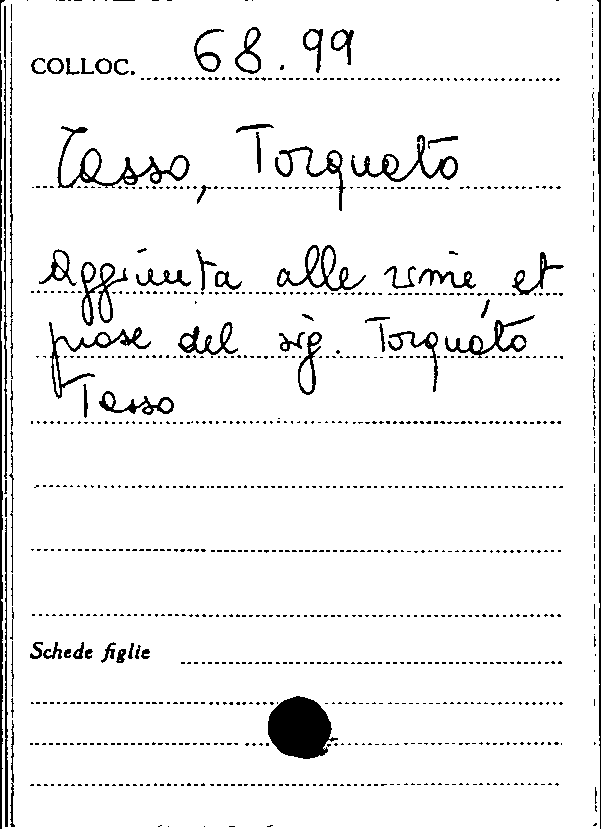 COLLOC. 68.99
Tasso, Torquato
Aggiunta alle rime, et
prose del sig. Torquato
Tasso
Schede figlie